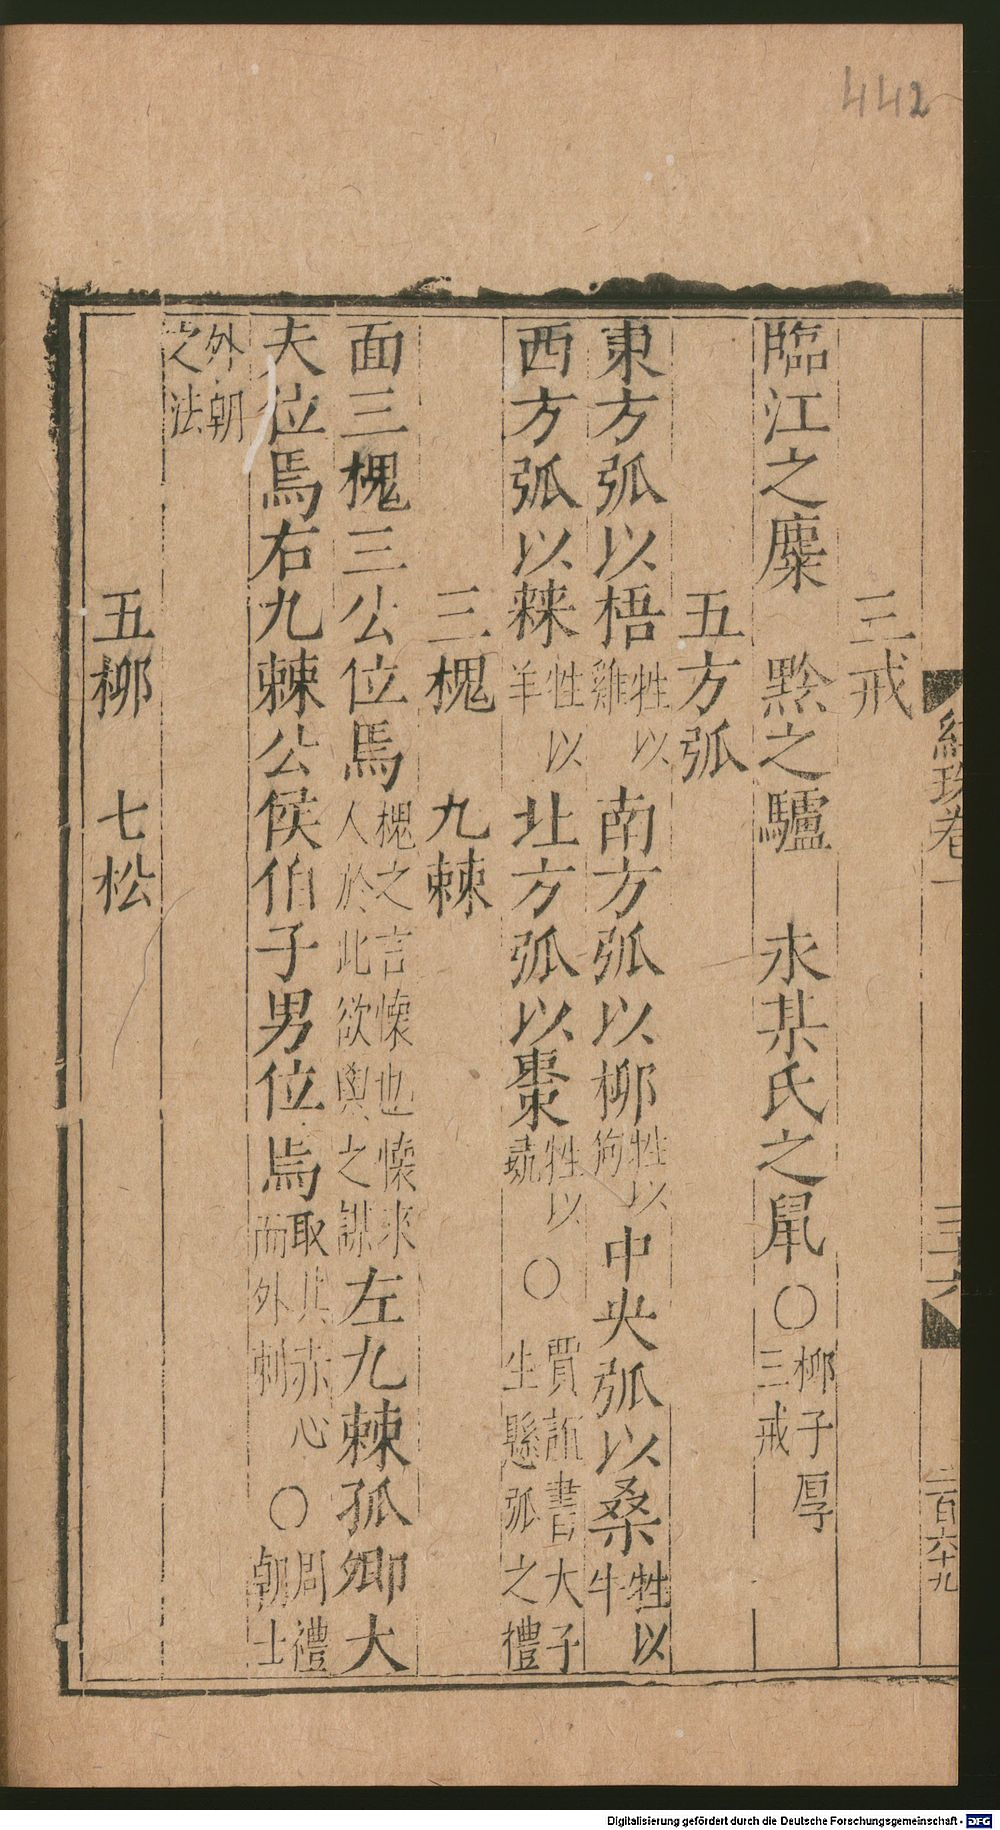 442
紺珠卷一
三十六
二百六十九
三戒
臨江之麋　黔之驢　永某氏之鼠○柳子厚三戒
五方弧
東方弧以梧牲以雞　南方弧以柳牲以狗　中央弧以桑牲以牛
西方弧以棘牲以羊　北方弧以棗牲以彘○賈誼書大子生懸弧之禮
三槐　九棘
面三槐三公位焉槐之言懷也懷來人於此欲與之謀左九棘孤卿大
夫位焉右九棘公侯伯子男位焉取其赤心而外刺○周禮朝士
外朝之法
五柳　七松
Digitalisierung gefördert durch die Deutsche Forschungsgemeinschaft - DFG